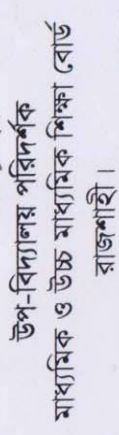 উপ-বিদ্যালয় পরিদর্শক
মাধ্যমিক ও উচ্চ মাধ্যমিক শিক্ষা বোর্ড
রাজশাহী।